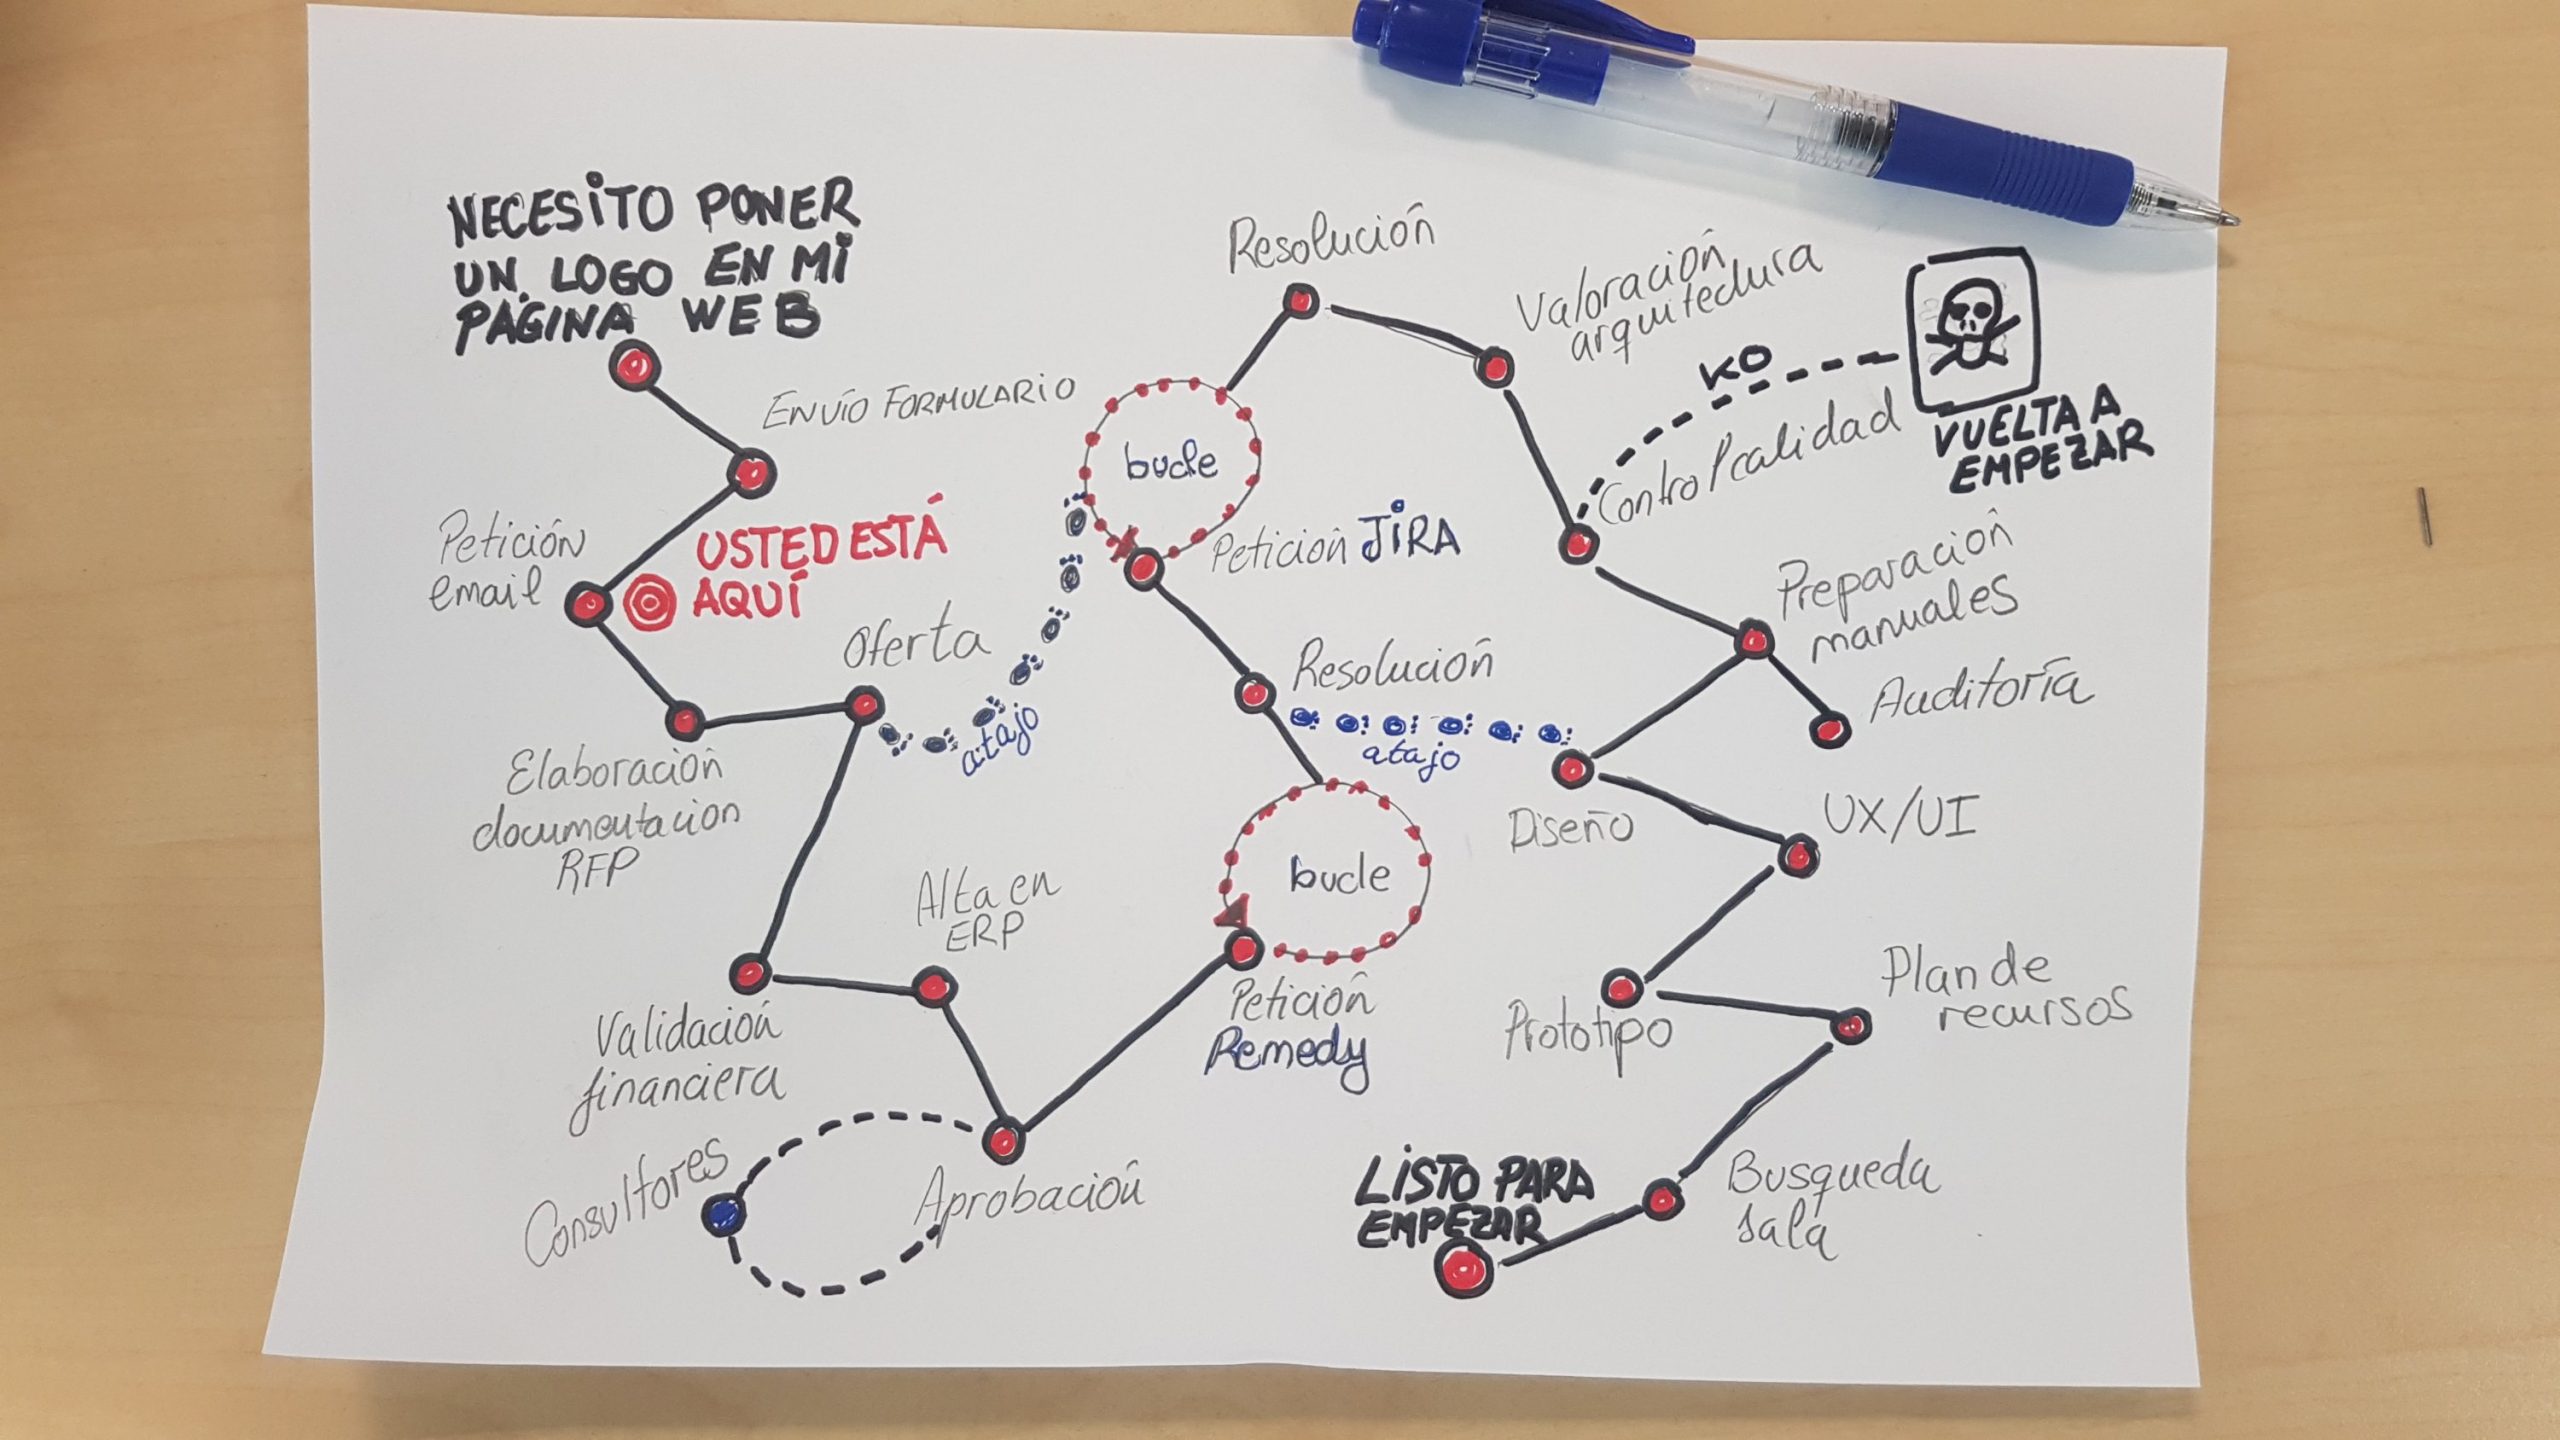 NECESITO PONER
UN LOGO EN MI
PÁGINA WEB
ENVÍO FORMULARIO
Petición
email
USTED ESTÁ
AQUÍ
Elaboración
documentacion
RFP
Oferta
atajo
Validación
financiera
Alta en
ERP
Consultores
Aprobación
Petición
Remedy
bucle
Resolución
atajo
Petición JIRA
bucle
Resolución
Valoración
arquitectura
Control calidad
KO
VUELTA A
EMPEZAR
Preparación
manuales
Auditoría
Diseño
UX/UI
Prototipo
Plan de
recursos
Busqueda
sala
LISTO PARA
EMPEZAR